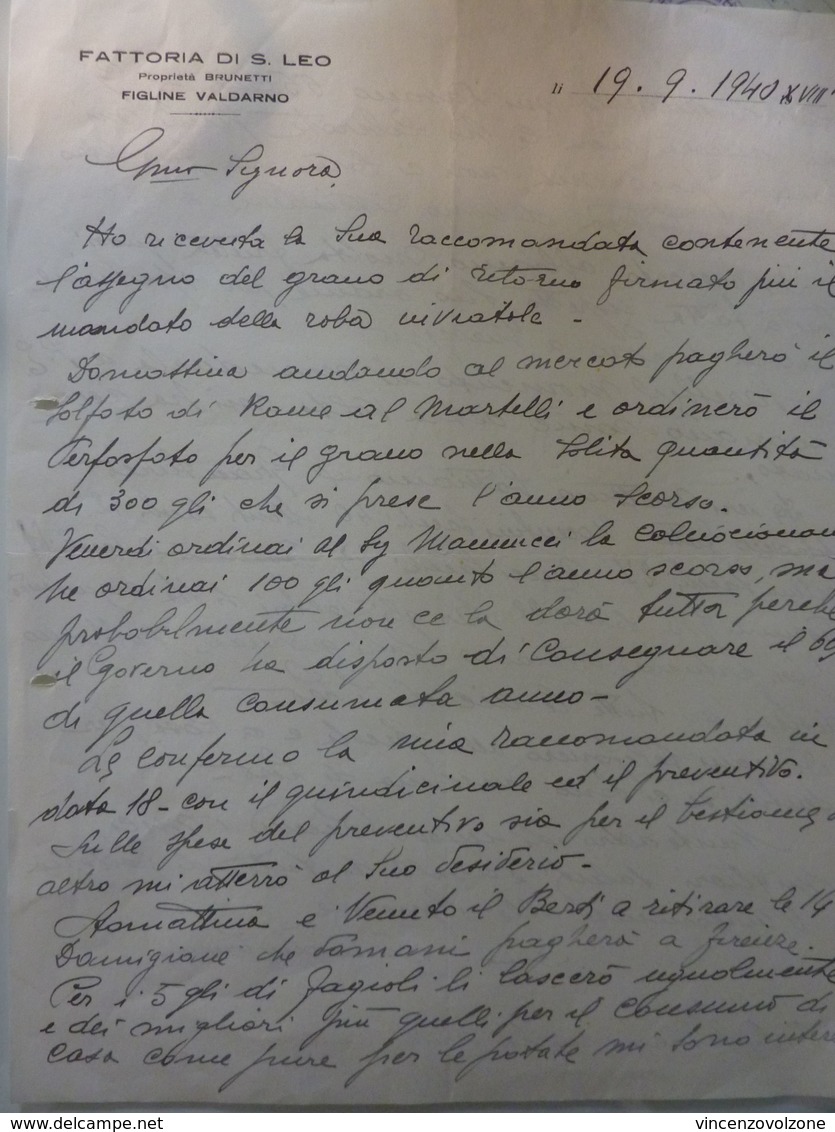 FATTORIA DI S. LEO
Proprietà BRUNETTI
FIGLINE VALDARNO
li 19. 9. 1940 XVIII°
Signora
Ho ricevuta la Sua raccomandata contenente
l'assegno del grano di ritorno firmato più il
mandato della roba
Domattina andando al mercato pagherò il
Solfato di Rame al Martelli e ordinerò il
Perfosfato per il grano nella solita quantità
di 300 qli che si prese l'anno scorso.
Venerdì ordinai al Sig Mannucci la
ne ordinai 100 qli quanto l'anno scorso, ma
probabilmente non ce la darà tutta perchè
il Governo ha disposto di consegnare il 60
di quella consumata anno -
Le confermo la mia raccomandata in
data 18 - con il quindicinale ed il preventivo.
Sulle spese del preventivo sia per il bestiame
altro mi atterrò al Suo desiderio -
è venuto il Berti a ritirare le 14
Damigiane che domani pagherà a Firenze.
Per i 5 qli di fagioli li lascerò ugualmente
e dei migliori più quelli per il consumo di
casa come pure per le patate mi sono
delcampe.net
vincenzovolzone